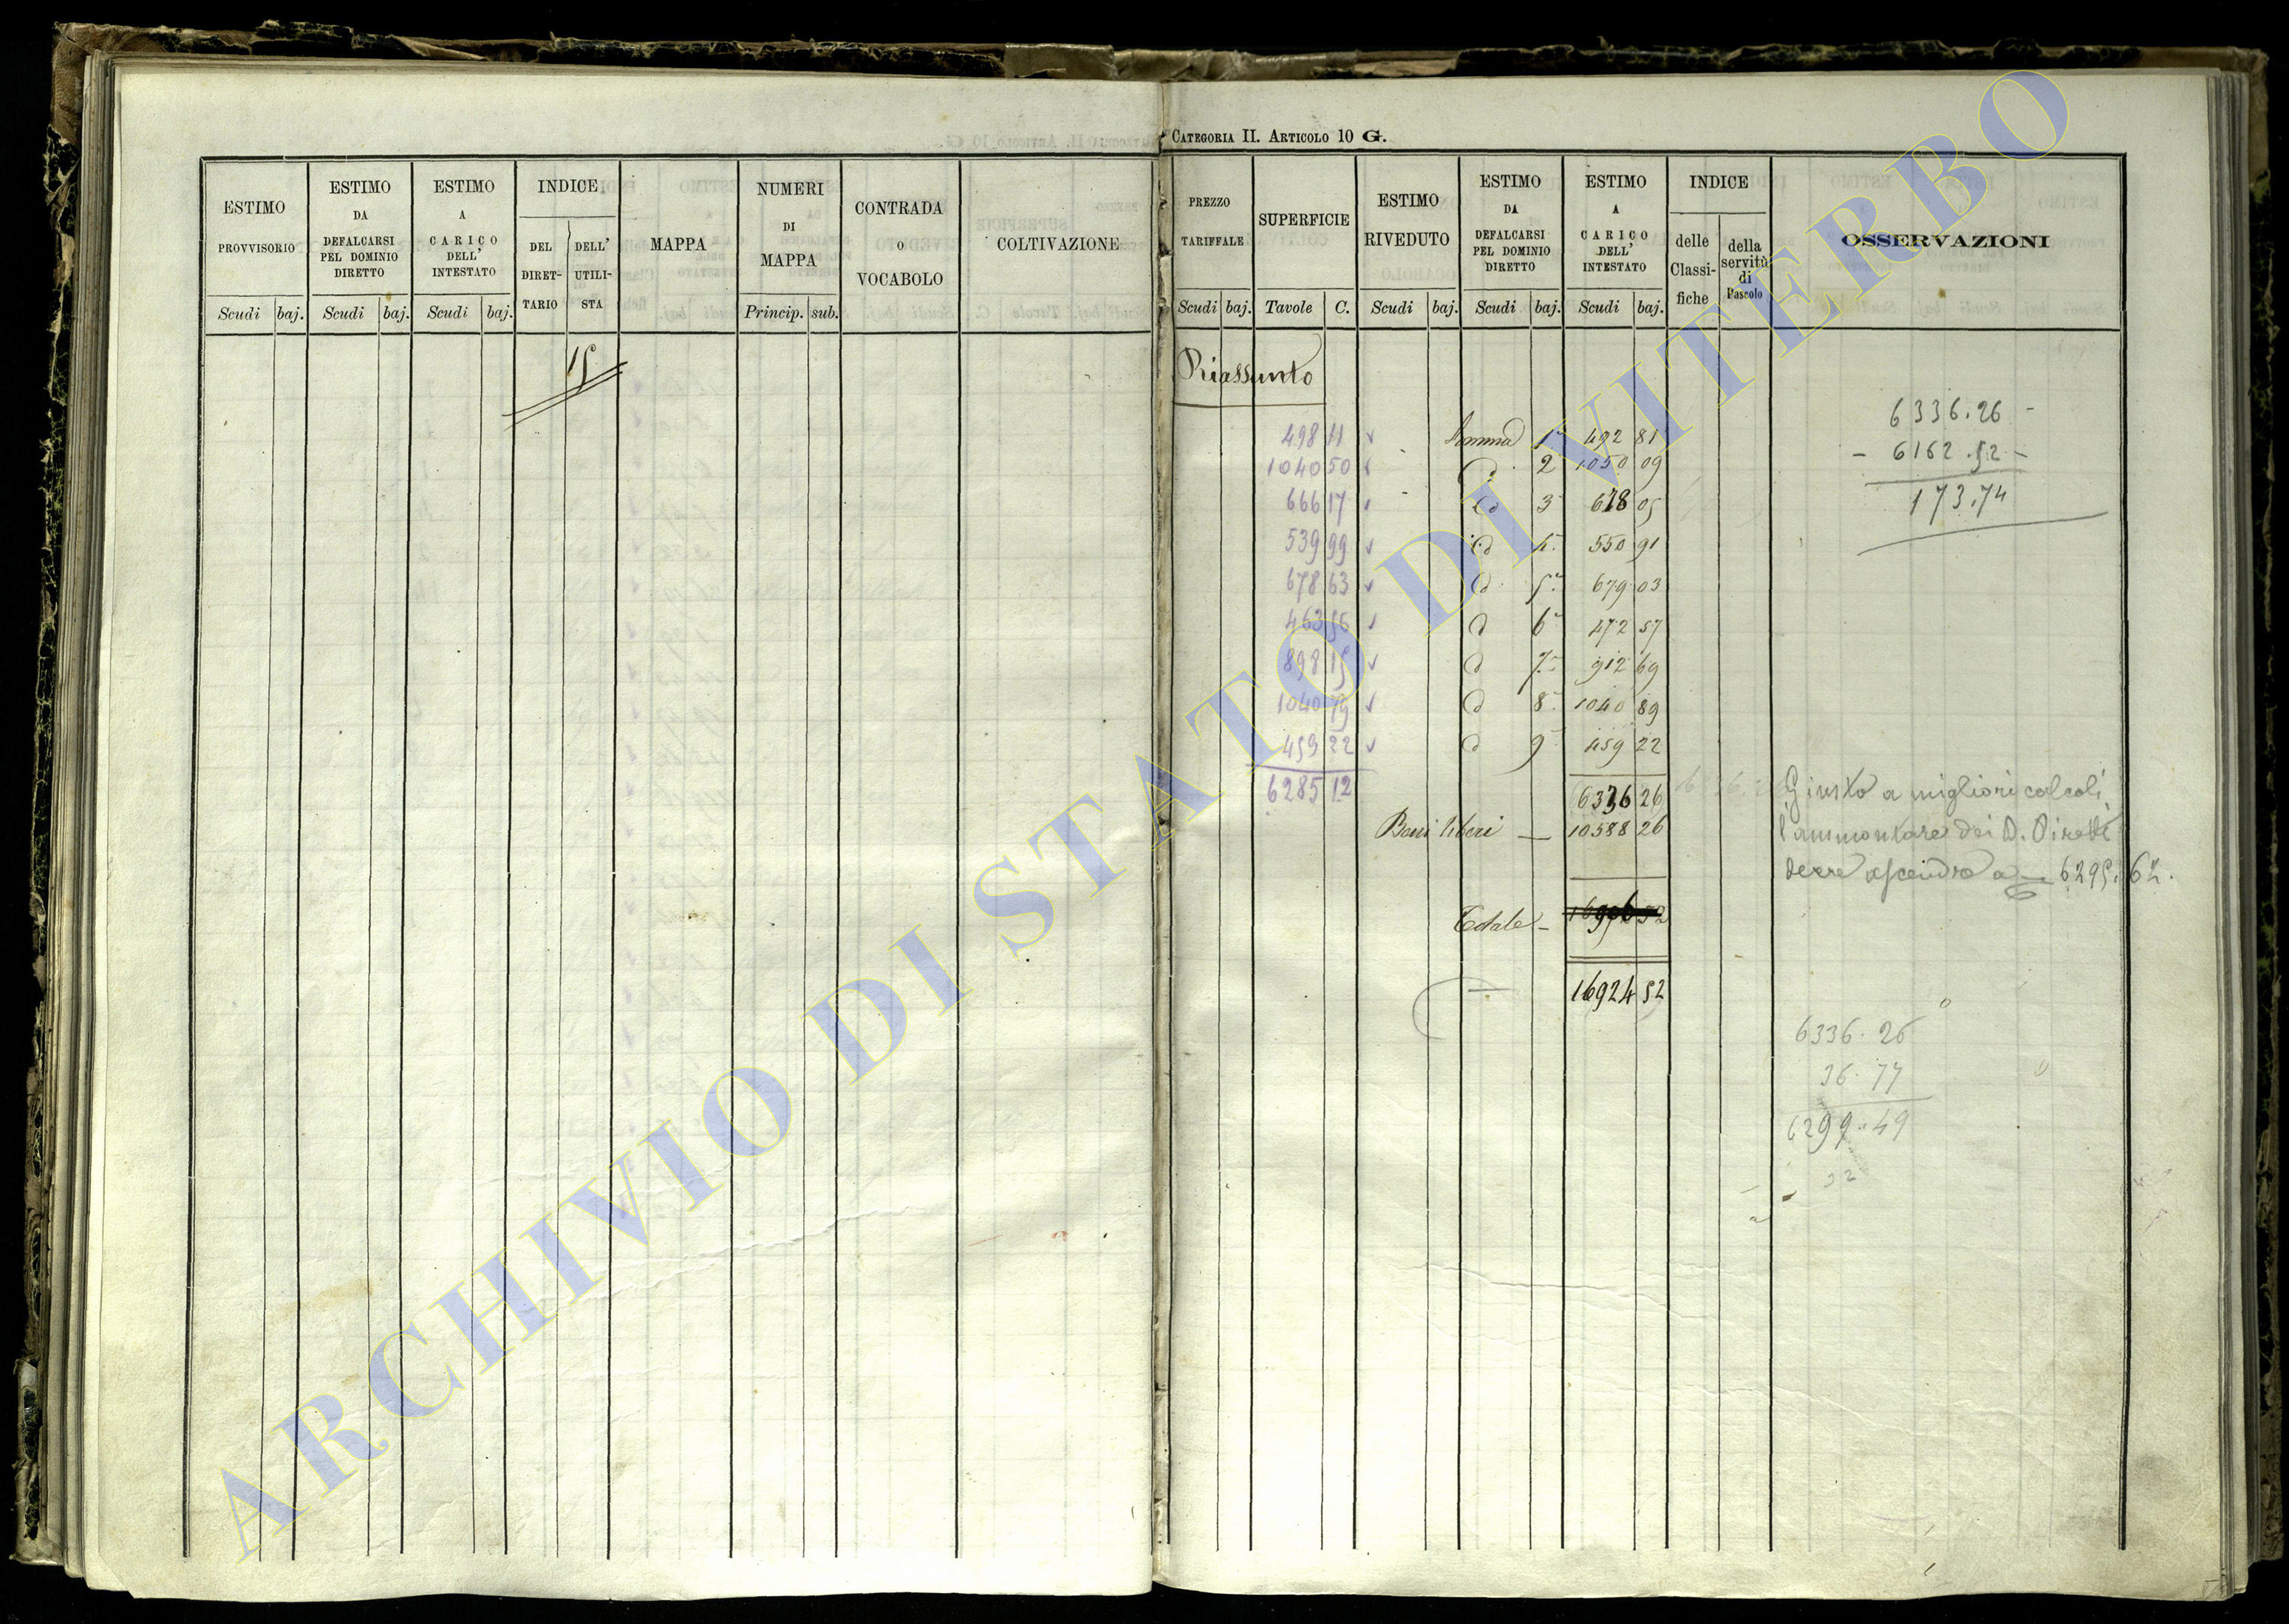 CATEGORIA II. ARTICOLO 10 G.
ESTIMO PROVVISORIO
Scudi baj.
ESTIMO DA DEFALCARSI PEL DOMINIO DIRETTO
Scudi baj.
ESTIMO A CARICO DELL' INTESTATO
Scudi baj.
INDICE
DEL DIRET-TARIO
DELL' UTILI-STA
MAPPA
NUMERI DI MAPPA
Princip. sub.
CONTRADA O VOCABOLO
COLTIVAZIONE
PREZZO TARIFFALE
Scudi baj.
SUPERFICIE
Tavole C.
ESTIMO RIVEDUTO
Scudi baj.
ESTIMO DA DEFALCARSI PEL DOMINIO DIRETTO
Scudi baj.
ESTIMO A CARICO DELL' INTESTATO
Scudi baj.
INDICE
delle Classi-fiche
della servitù di Pascolo
OSSERVAZIONI
15
Riassunto
498 11 Somma 1ª 492 81
1040 50 Id 2 1050 09
666 17 Id 3 678 05
539 99 Id 4. 550 91
678 63 Id 5ª 679 03
463 56 Id 6ª 472 57
898 15 Id 7ª 912 69
1040 79 Id 8ª 1040 89
459 22 Id 9ª 459 22
6285 12 6336 26
Beni liberi — 10588 26
Totale — 16906 52
16924 52
6336.26 -
- 6162.52 -
173.74
Giusto a migliori calcoli
l'ammontare dei D. Diretti
deve ascendre a — 6295.62.
6336.26
36.77
6299.49
32
ARCHIVIO DI STATO DI VITERBO